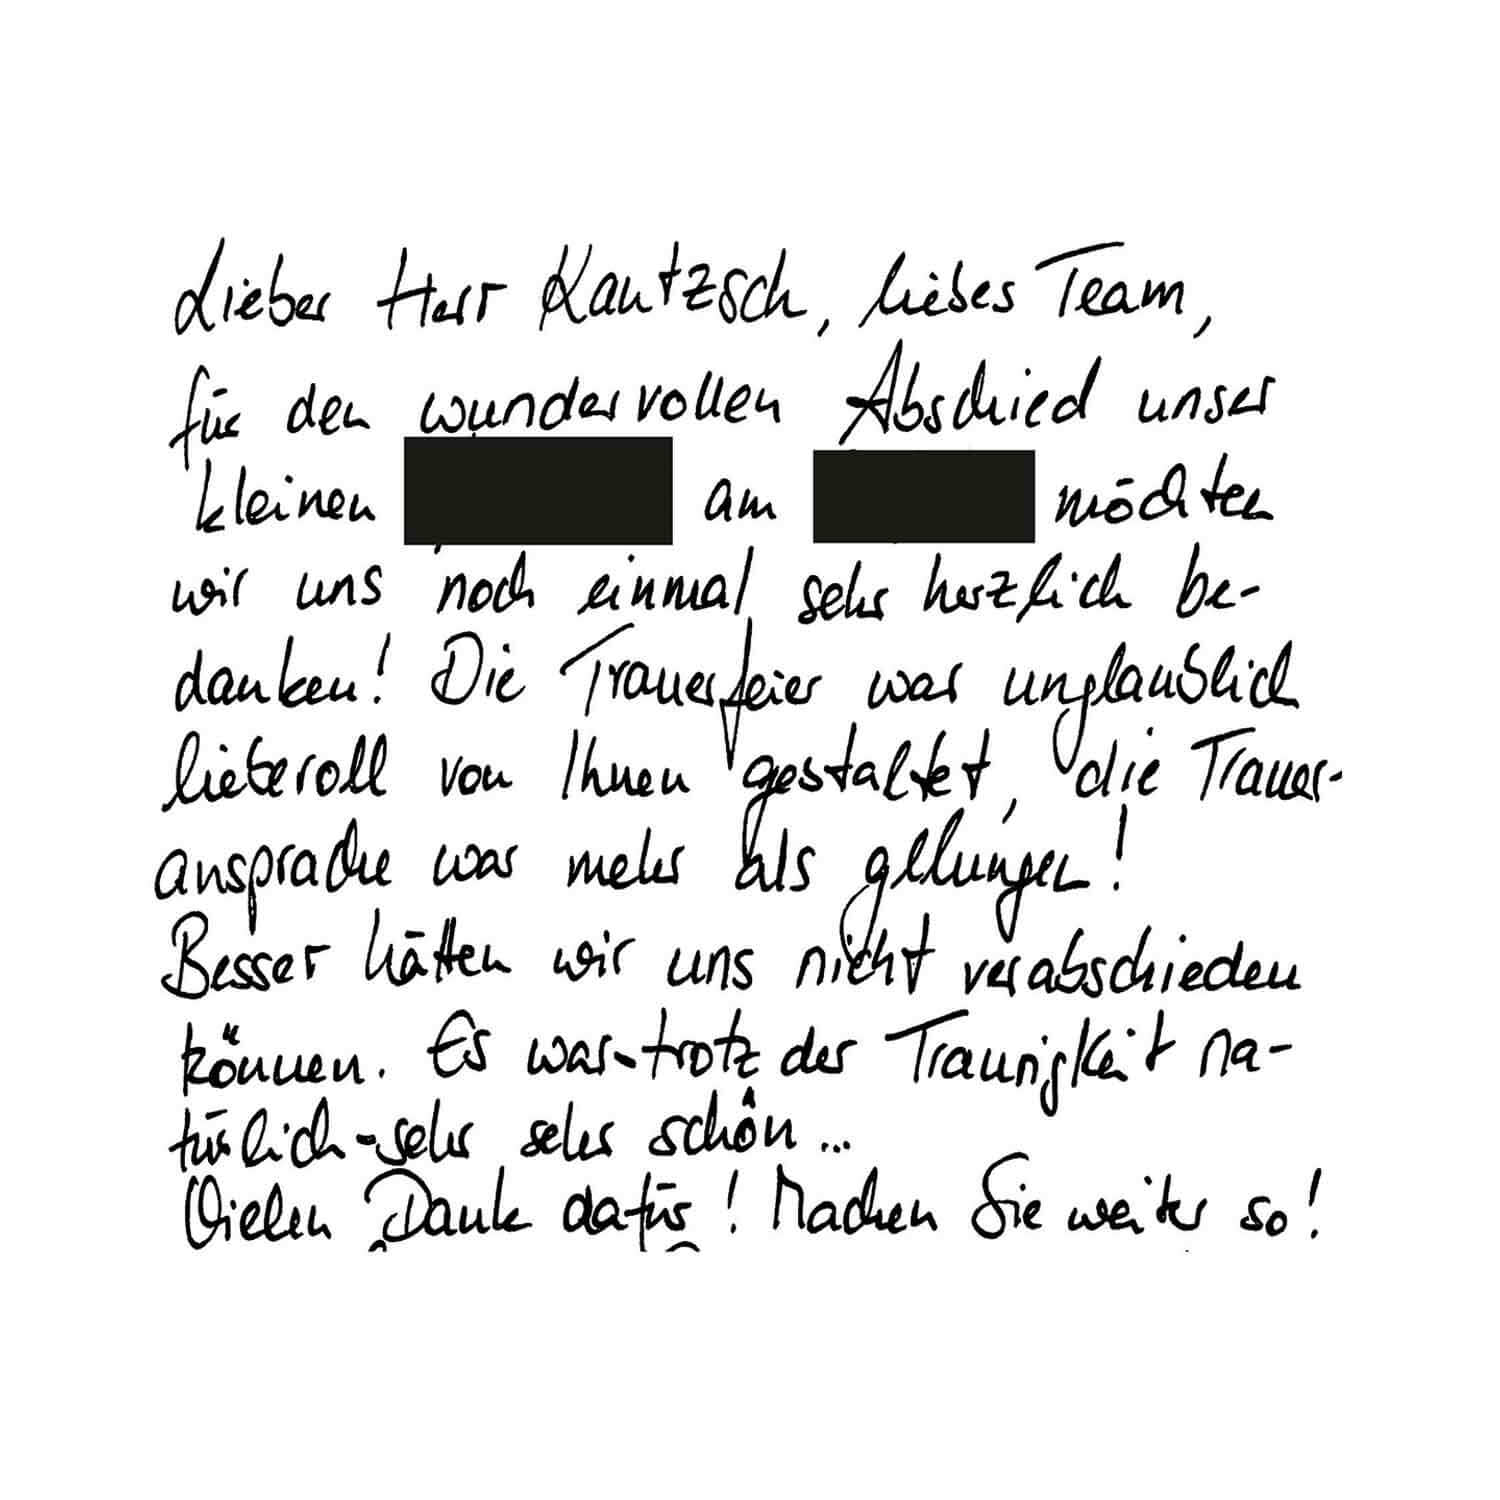 Lieber Herr Kautzsch, liebes Team,
für den wundervollen Abschied unser
kleinen am möchten
wir uns noch einmal sehr herzlich be-
danken! Die Trauerfeier war unglaublich
liebevoll von Ihnen gestaltet, die Trauer-
ansprache war mehr als gelungen!
Besser hätten wir uns nicht verabschieden
können. Es war-trotz der Traurigkeit na-
türlich-sehr sehr schön...
Vielen Dank dafür! Machen Sie weiter so!